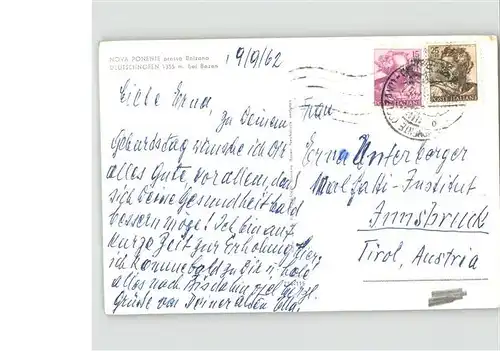 NOVA PONENTE presso Bolzano
DEUTSCHNOFEN 1355 m. bei Bozen
19/9/62
Liebe Erna, zu Deinem
Geburtstag wünsche ich Dir
alles Gute, vor allem, dass
sich Deine Gesundheit bald
bessern möge! Ich bin auf
kurze Zeit zur Erholung hier,
ich komme bald zu Dir u. hole
alles nach. Bis dahin viel herzl.
Grüsse von Deiner alten
Frau
Erna Unterberger
Institut
Innsbruck
Tirol, Austria
15
POSTE ITALIANE
25
POSTE ITALIANE